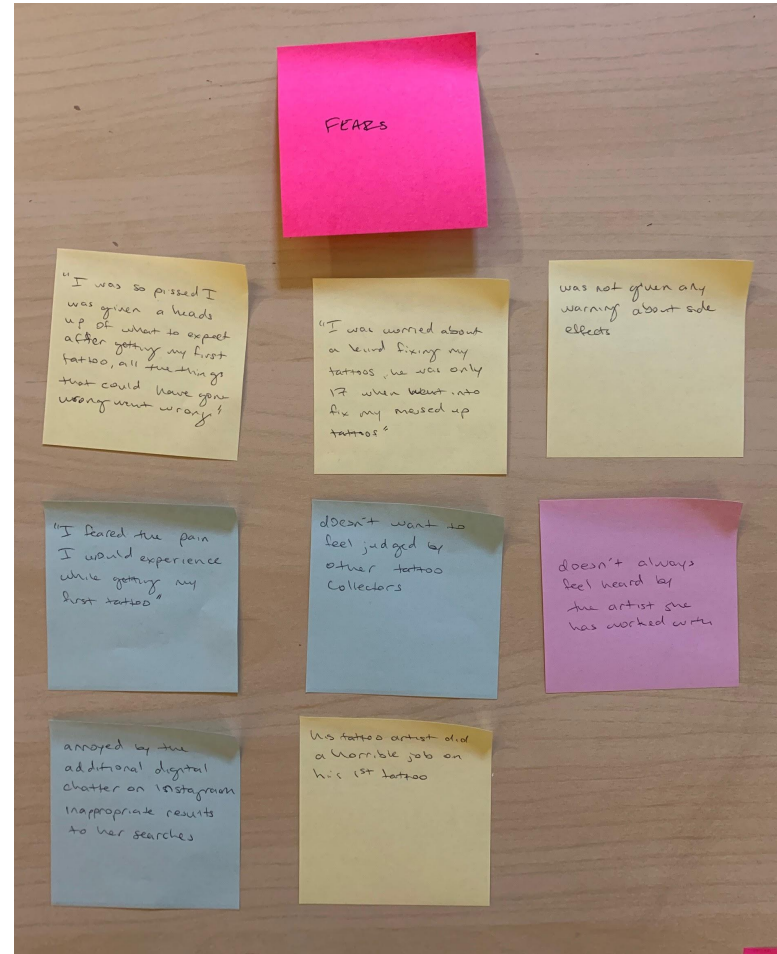 FEARS
"I was so pissed I
was given a heads
up of what to expect
after getting my first
tattoo, all the things
that could have gone
wrong went wrong"
"I was worried about
a kid fixing my
tattoos, he was only
17 when went into
fix my messed up
tattoos"
was not given any
warning about side
effects
"I feared the pain
I would experience
while getting my
first tattoo"
doesn't want to
feel judged by
other tattoo
collectors
doesn't always
feel heard by
the artist she
has worked with
annoyed by the
additional digital
chatter on instagram
inappropriate results
to her searches
his tattoo artist did
a horrible job on
his 1st tattoo